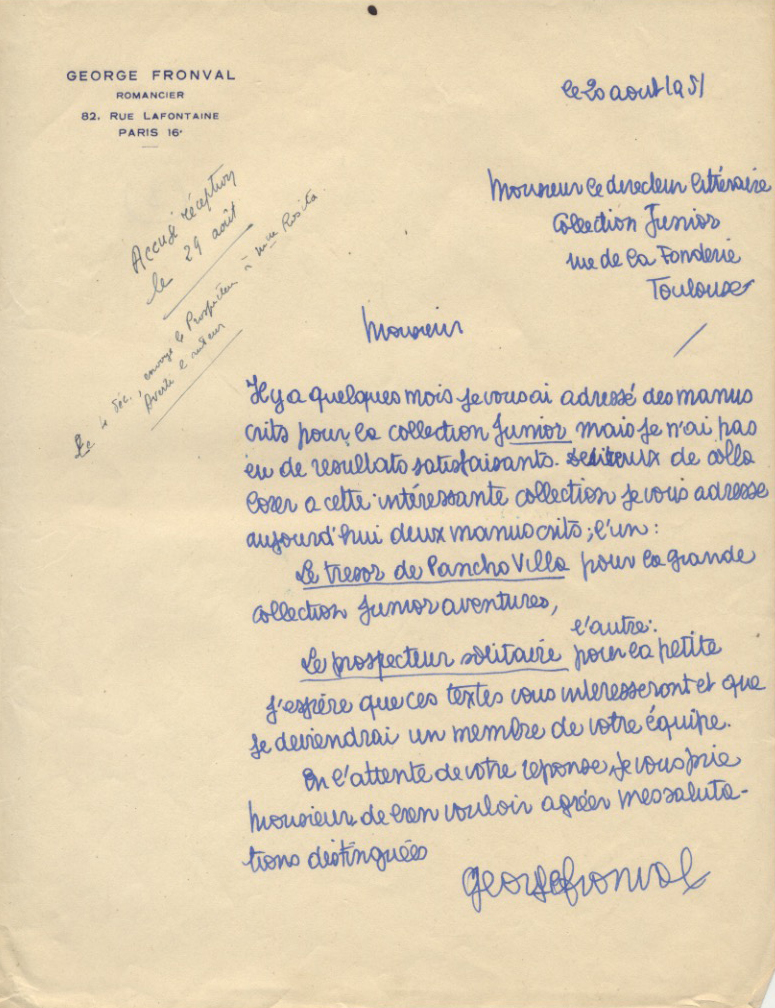 GEORGE FRONVAL
ROMANCIER
82, RUE LAFONTAINE
PARIS 16e
le 20 aout 1951
Accusé réception
le 29 août
Le 4 Déc., envoyé le Prospecteur à Mme Rosita.
Averti l'auteur
Monsieur le directeur littéraire
Collection Junior
rue de la Fonderie
Toulouse
Monsieur
Il y a quelques mois je vous ai adressé des manus
crits pour la collection Junior mais je n'ai pas
eu de resultats satisfaisants. de colla
borer a cette intéressante collection je vous adresse
aujourd'hui deux manuscrits; l'un :
Le tresor de Pancho Villa pour la grande
collection Junior aventures,
l'autre:
Le prospecteur solitaire pour la petite
J'espère que ces textes vous interesseront et que
je deviendrai un membre de votre équipe.
En l'attente de votre reponse, je vous prie
monsieur de bien vouloir agréer mes saluta-
tions distinguées
George Fronval